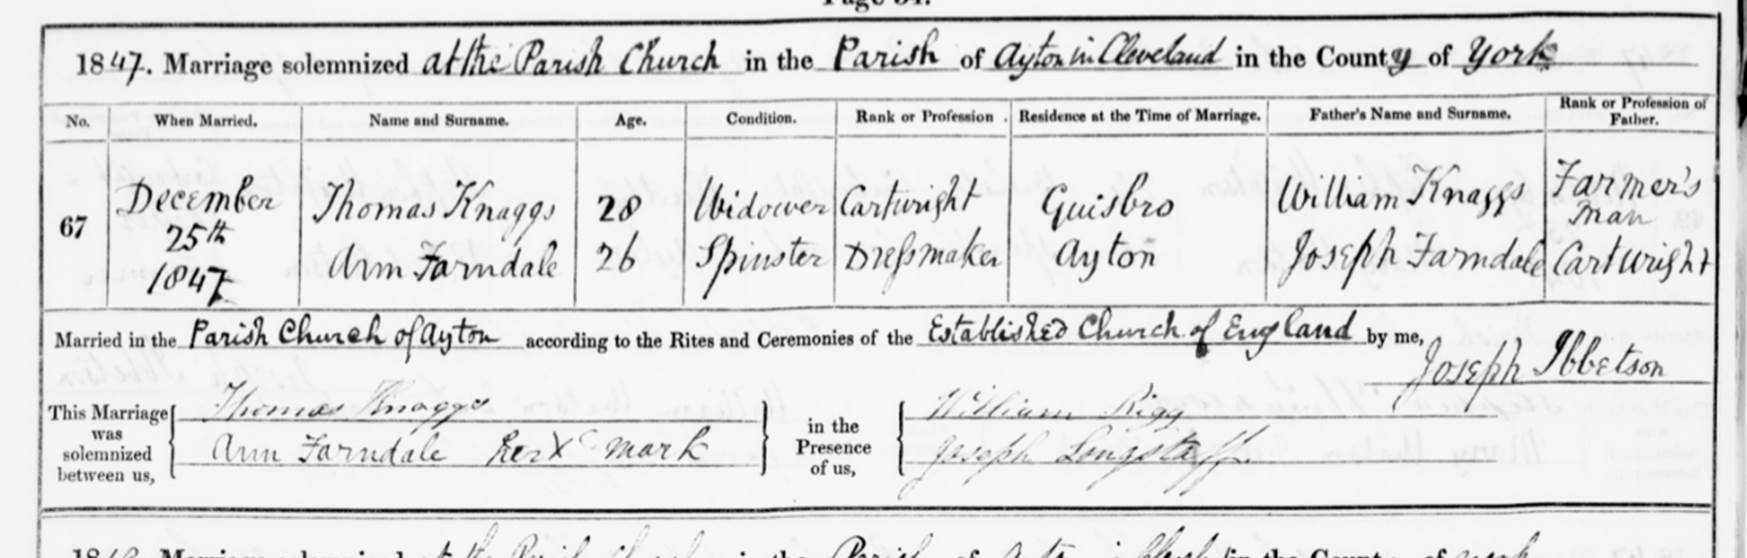 1847. Marriage solemnized at the Parish Church in the Parish of Ayton in Cleveland in the County of York
No. When Married. Name and Surname. Age. Condition. Rank or Profession. Residence at the Time of Marriage. Father's Name and Surname. Rank or Profession of Father.
67 December 25th 1847 Thomas Knaggs 28 Widower Cartwright Guisbro William Knaggs Farmer's man
Ann Farndale 26 Spinster Dressmaker Ayton Joseph Farndale Cartwright
Married in the Parish Church of Ayton according to the Rites and Ceremonies of the Established Church of England by me,
Joseph Ibbetson
This Marriage was solemnized between us, Thomas Knaggs
Ann Farndale her X mark
in the Presence of us, William Rigg
Joseph Longstaff